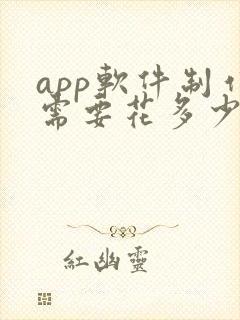 app軟件制
需要花多少
紅幽靈